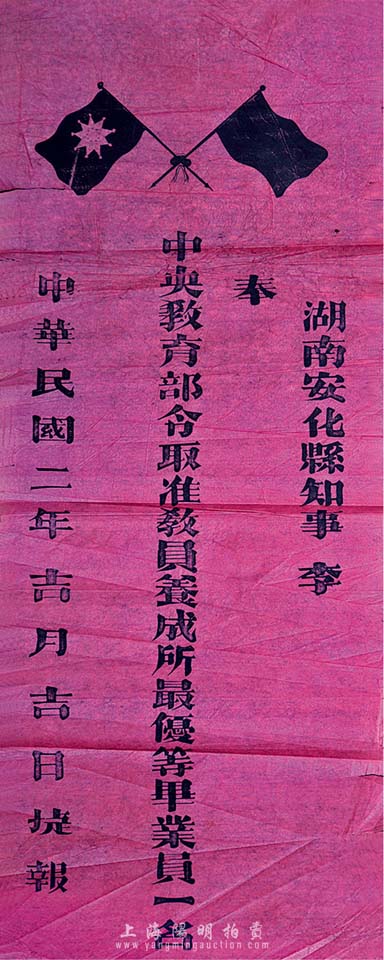 湖南安化縣知事 李
奉
中央教育部令取准教員養成所最優等畢業員一名
中華民國二年吉月吉日捷報
上海陽明拍賣
www.yangmingauction.com